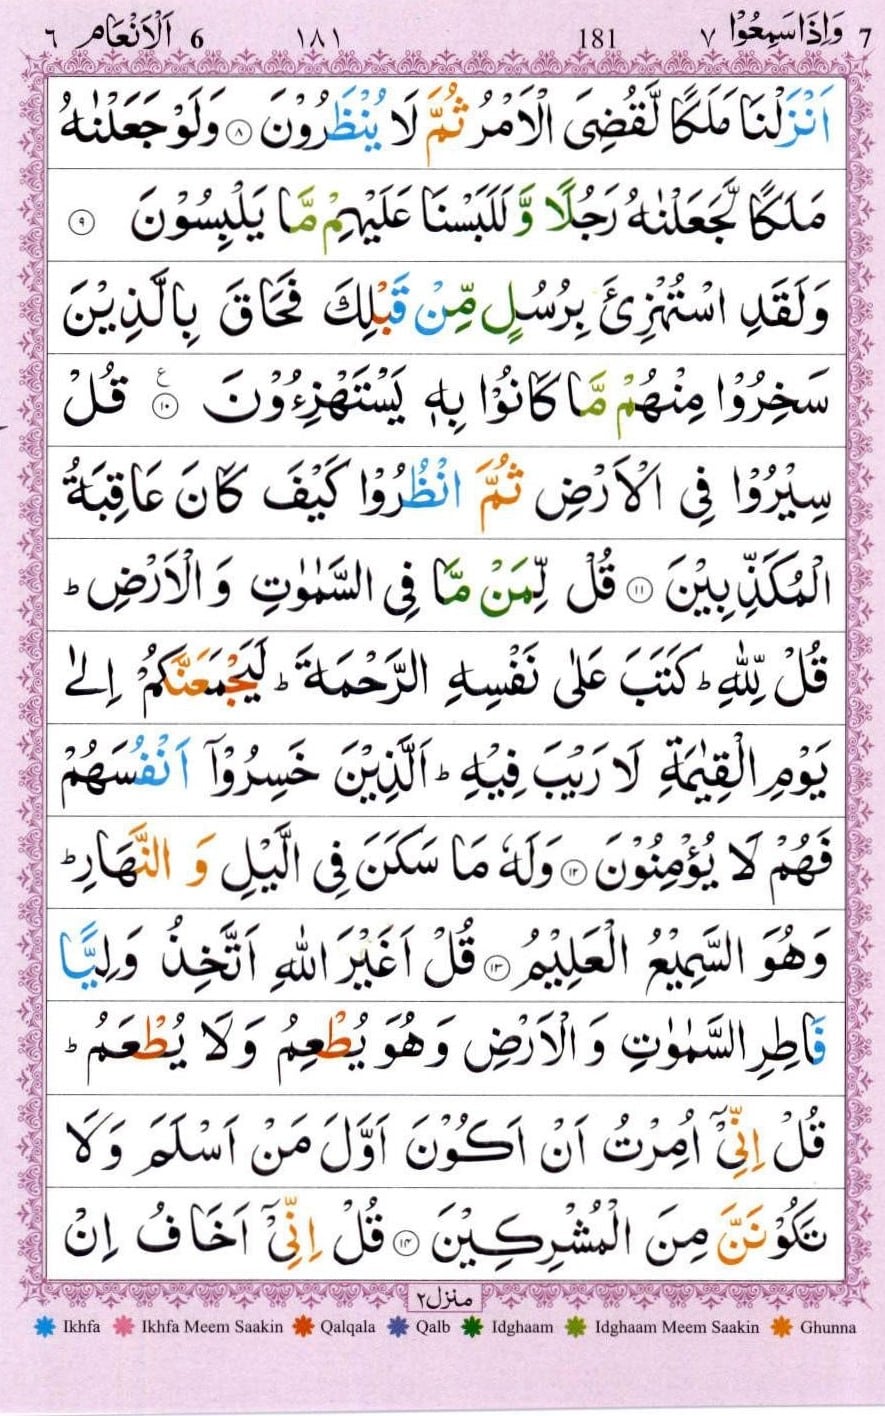 ٦ اَلْاَنْعَام 6 ١٨١ 181 ٧ وَاِذَا سَمِعُوْا 7
اَنْزَلْنَا مَلَكًا لَّقُضِىَ الْاَمْرُ ثُمَّ لَا يُنْظَرُوْنَ ۝٨ وَلَوْ جَعَلْنٰهُ
مَلَكًا لَّجَعَلْنٰهُ رَجُلًا وَّ لَلَبَسْنَا عَلَيْهِمْ مَّا يَلْبِسُوْنَ ۝٩
وَلَقَدِ اسْتُهْزِئَ بِرُسُلٍ مِّنْ قَبْلِكَ فَحَاقَ بِالَّذِيْنَ
سَخِرُوْا مِنْهُمْ مَّا كَانُوْا بِهٖ يَسْتَهْزِءُوْنَ ۝١٠ ع قُلْ
سِيْرُوْا فِى الْاَرْضِ ثُمَّ انْظُرُوْا كَيْفَ كَانَ عَاقِبَةُ
الْمُكَذِّبِيْنَ ۝١١ قُلْ لِّمَنْ مَّا فِى السَّمٰوٰتِ وَ الْاَرْضِ ؕ
قُلْ لِّلّٰهِ ؕ كَتَبَ عَلٰى نَفْسِهِ الرَّحْمَةَ ؕ لَيَجْمَعَنَّكُمْ اِلٰى
يَوْمِ الْقِيٰمَةِ لَا رَيْبَ فِيْهِ ؕ اَلَّذِيْنَ خَسِرُوْۤا اَنْفُسَهُمْ
فَهُمْ لَا يُؤْمِنُوْنَ ۝١٢ وَلَهٗ مَا سَكَنَ فِى الَّيْلِ وَ النَّهَارِ ؕ
وَهُوَ السَّمِيْعُ الْعَلِيْمُ ۝١٣ قُلْ اَغَيْرَ اللّٰهِ اَتَّخِذُ وَلِيًّا
فَاطِرِ السَّمٰوٰتِ وَ الْاَرْضِ وَهُوَ يُطْعِمُ وَلَا يُطْعَمُ ؕ
قُلْ اِنِّىْۤ اُمِرْتُ اَنْ اَكُوْنَ اَوَّلَ مَنْ اَسْلَمَ وَلَا
تَكُوْنَنَّ مِنَ الْمُشْرِكِيْنَ ۝١٤ قُلْ اِنِّىْۤ اَخَافُ اِنْ
منزل ٢
Ikhfa Ikhfa Meem Saakin Qalqala Qalb Idghaam Idghaam Meem Saakin Ghunna